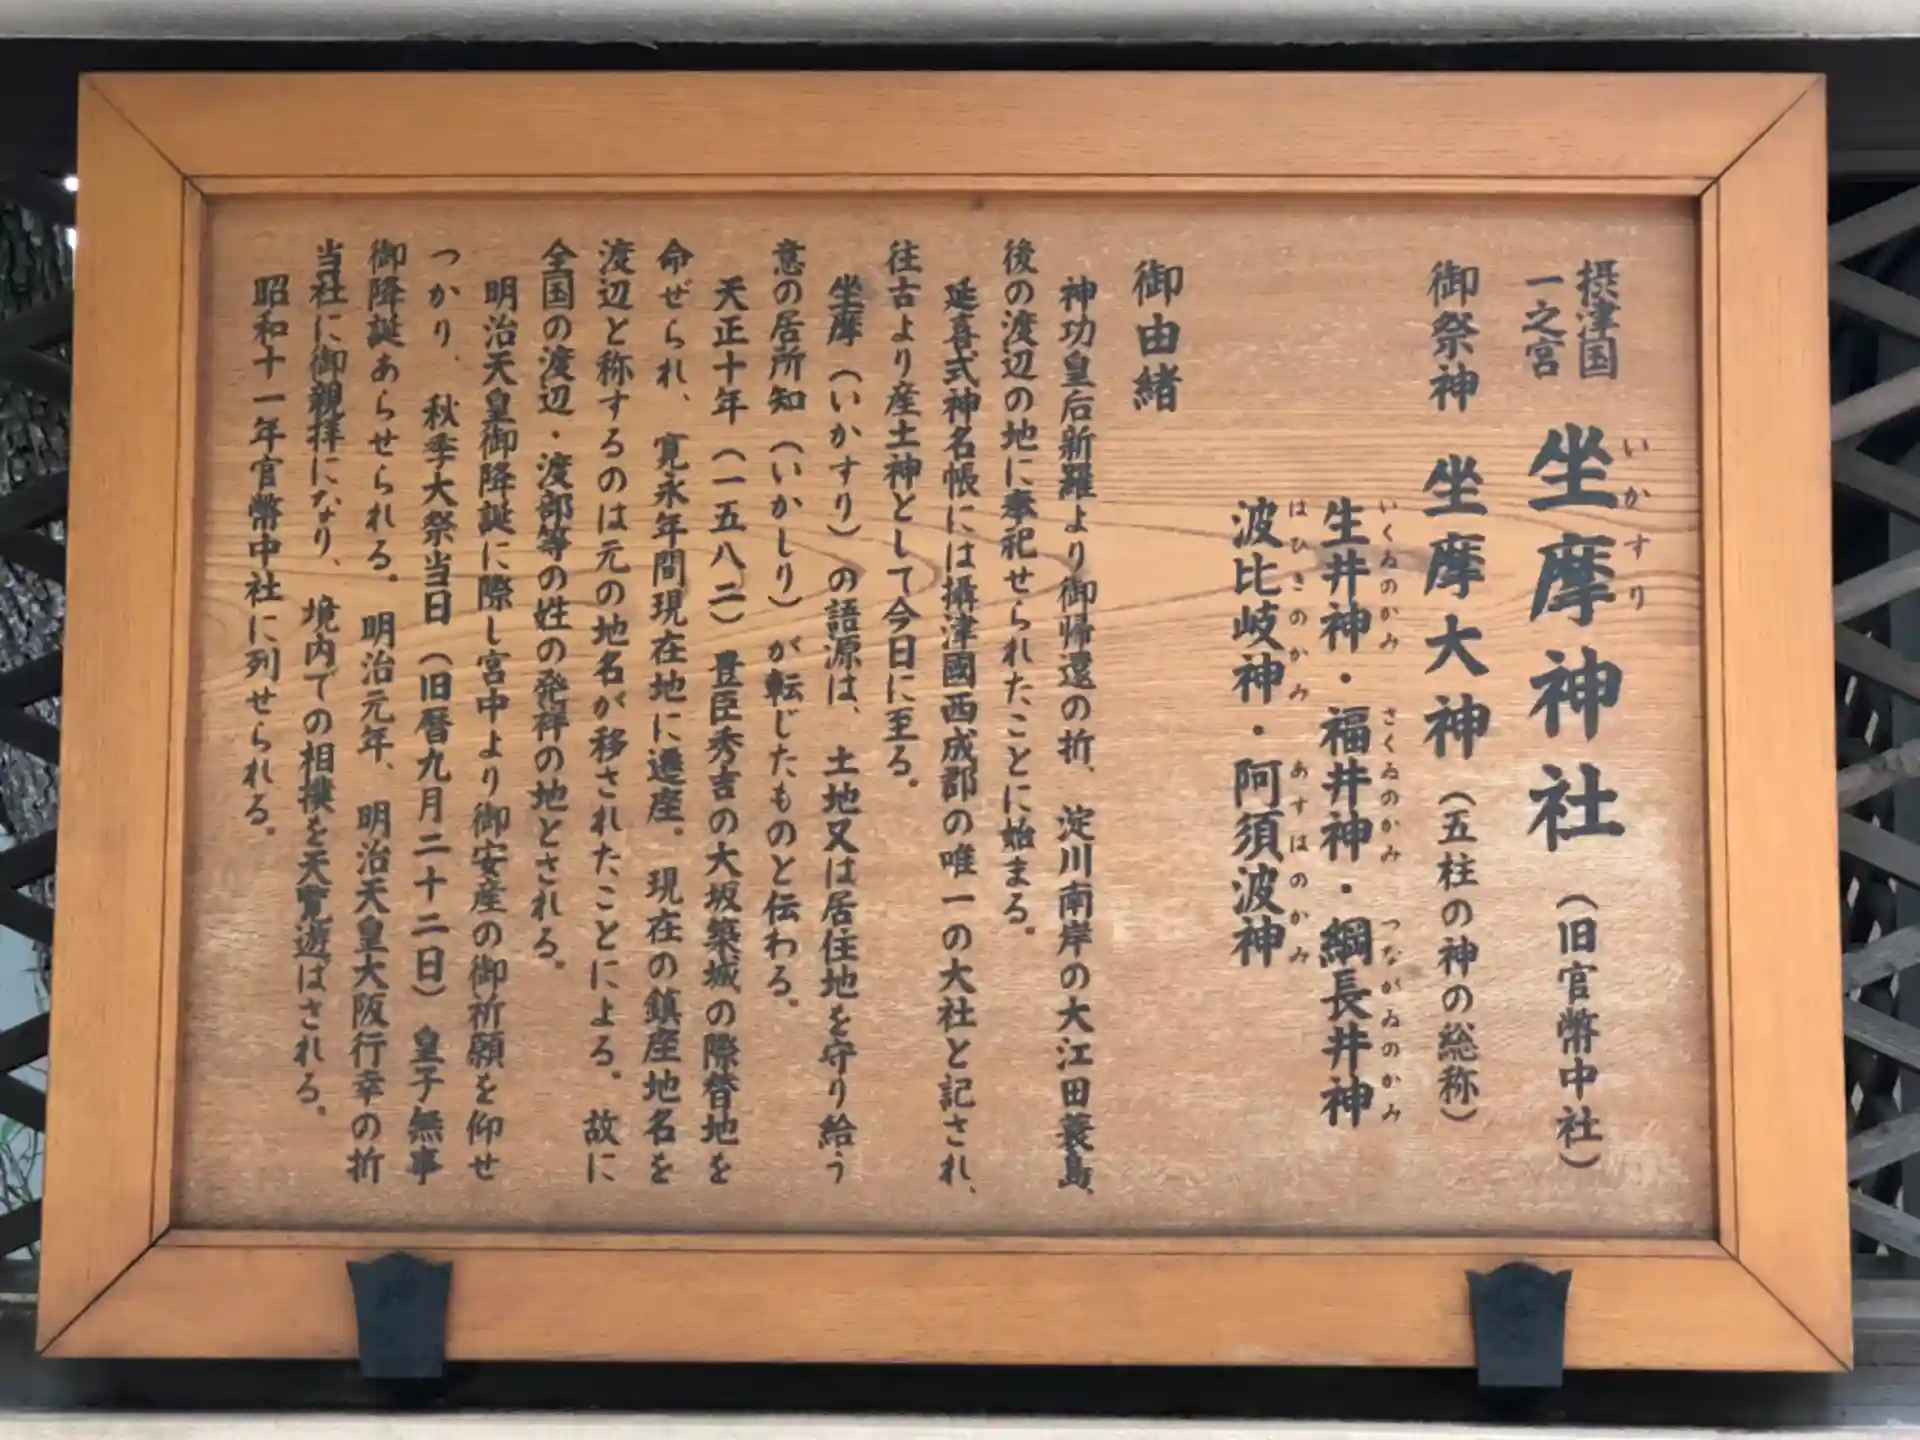 摂津国
一之宮
坐摩神社（旧官幣中社）
いかすり
御祭神 坐摩大神（五柱の神の総称）
いくゐのかみ さくゐのかみ つながゐのかみ
生井神・福井神・綱長井神
はひきのかみ あすはのかみ
波比岐神・阿須波神
御由緒
神功皇后新羅より御帰還の折、淀川南岸の大江田蓑島、
後の渡辺の地に奉祀せられたことに始まる。
延喜式神名帳には攝津國西成郡の唯一の大社と記され、
往古より産土神として今日に至る。
坐摩（いかすり）の語源は、土地又は居住地を守り給う
意の居所知（いかしり）が転じたものと伝わる。
天正十年（一五八二）豊臣秀吉の大坂築城の際替地を
命ぜられ、寛永年間現在地に遷座。現在の鎮座地名を
渡辺と称するのは元の地名が移されたことによる。故に
全国の渡辺・渡部等の姓の発祥の地とされる。
明治天皇御降誕に際し宮中より御安産の御祈願を仰せ
つかり、秋季大祭当日（旧暦九月二十二日）皇子無事
御降誕あらせられる。明治元年、明治天皇大阪行幸の折
当社に御親拝になり、境内での相撲を天覧遊ばされる。
昭和十一年官幣中社に列せられる。